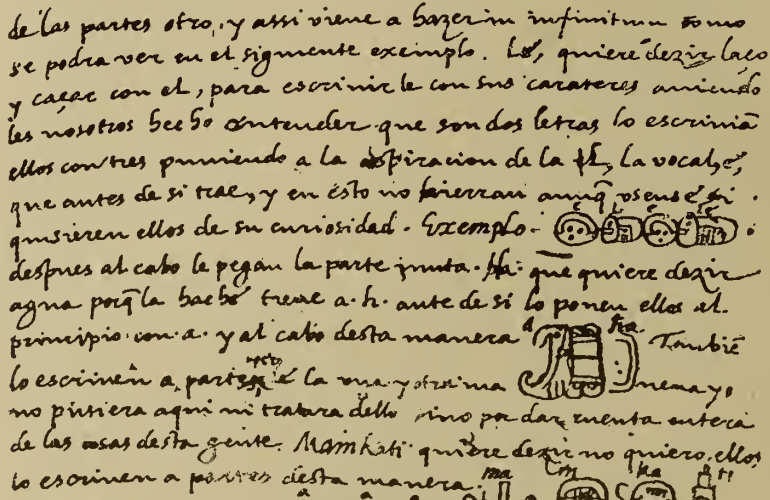 de las partes otro, y assi viene a hazer in infinitum como
se podra ver en el siguiente exemplo. Lé, quiere dezir laço
y caçar con el, para escrivirle con sus carateres aviendo
les nosotros hecho entender que son dos letras lo escriviã
ellos con tres puniendo a la aspiracion de la l, la vocal, é,
que antes de si trae, y en esto no hierran aunq̃ usense, si
quisieren ellos de su curiosidad. Exemplo.
despues al cabo le pegan la parte junta. Ha. que quiere dezir
agua porq̃ la haché tiene a. h. ante de si lo ponen ellos al
principio con a. y al cabo desta manera a ha. Tambiẽ
lo escriven a partes, la una y otra ma nera yo
no pusiera aqui ni tratara dello sino por dar cuenta entera
de las cosas desta gente. Mainkati quiere dezir no quiero ellos
lo escriven a partes desta manera. ma i n ka ti